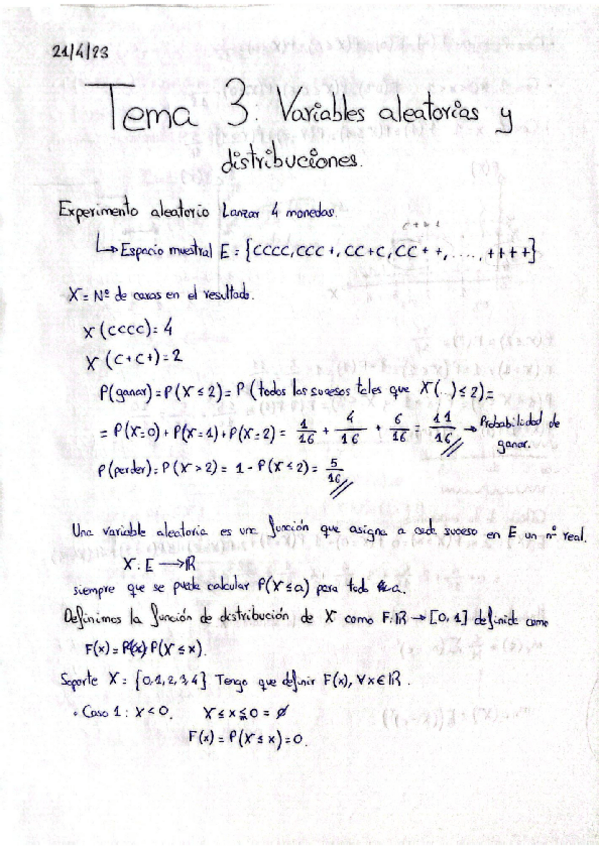 21/4/23
Tema 3: Variables aleatorias y
distribuciones.
Experimento aleatorio Lanzar 4 monedas.
↳ Espacio muestral E = {CCCC, CCC+, CC+C, CC++, ...., ++++}
X = Nº de caras en el resultado.
X(CCCC) = 4
X(C+C+) = 2
P(ganar) = P(X ≤ 2) = P(todos los sucesos tales que X(...) ≤ 2) =
= P(X=0) + P(X=1) + P(X=2) = 1/16 + 4/16 + 6/16 = 11/16 → Probabilidad de
ganar.
P(perder) = P(X > 2) = 1 - P(X ≤ 2) = 5/16
Una variable aleatoria es una función que asigna a cada suceso en E un nº real.
X: E → ℝ
siempre que se pueda calcular P(X ≤ a) para todo a.
Definimos la función de distribución de X como F: ℝ → [0, 1] definida como
F(x) = P(X ≤ x).
Soporte X = {0, 1, 2, 3, 4} Tengo que definir F(x), ∀x ∈ ℝ.
• Caso 1: x < 0. X ≤ x ≤ 0 = ∅
F(x) = P(X ≤ x) = 0.